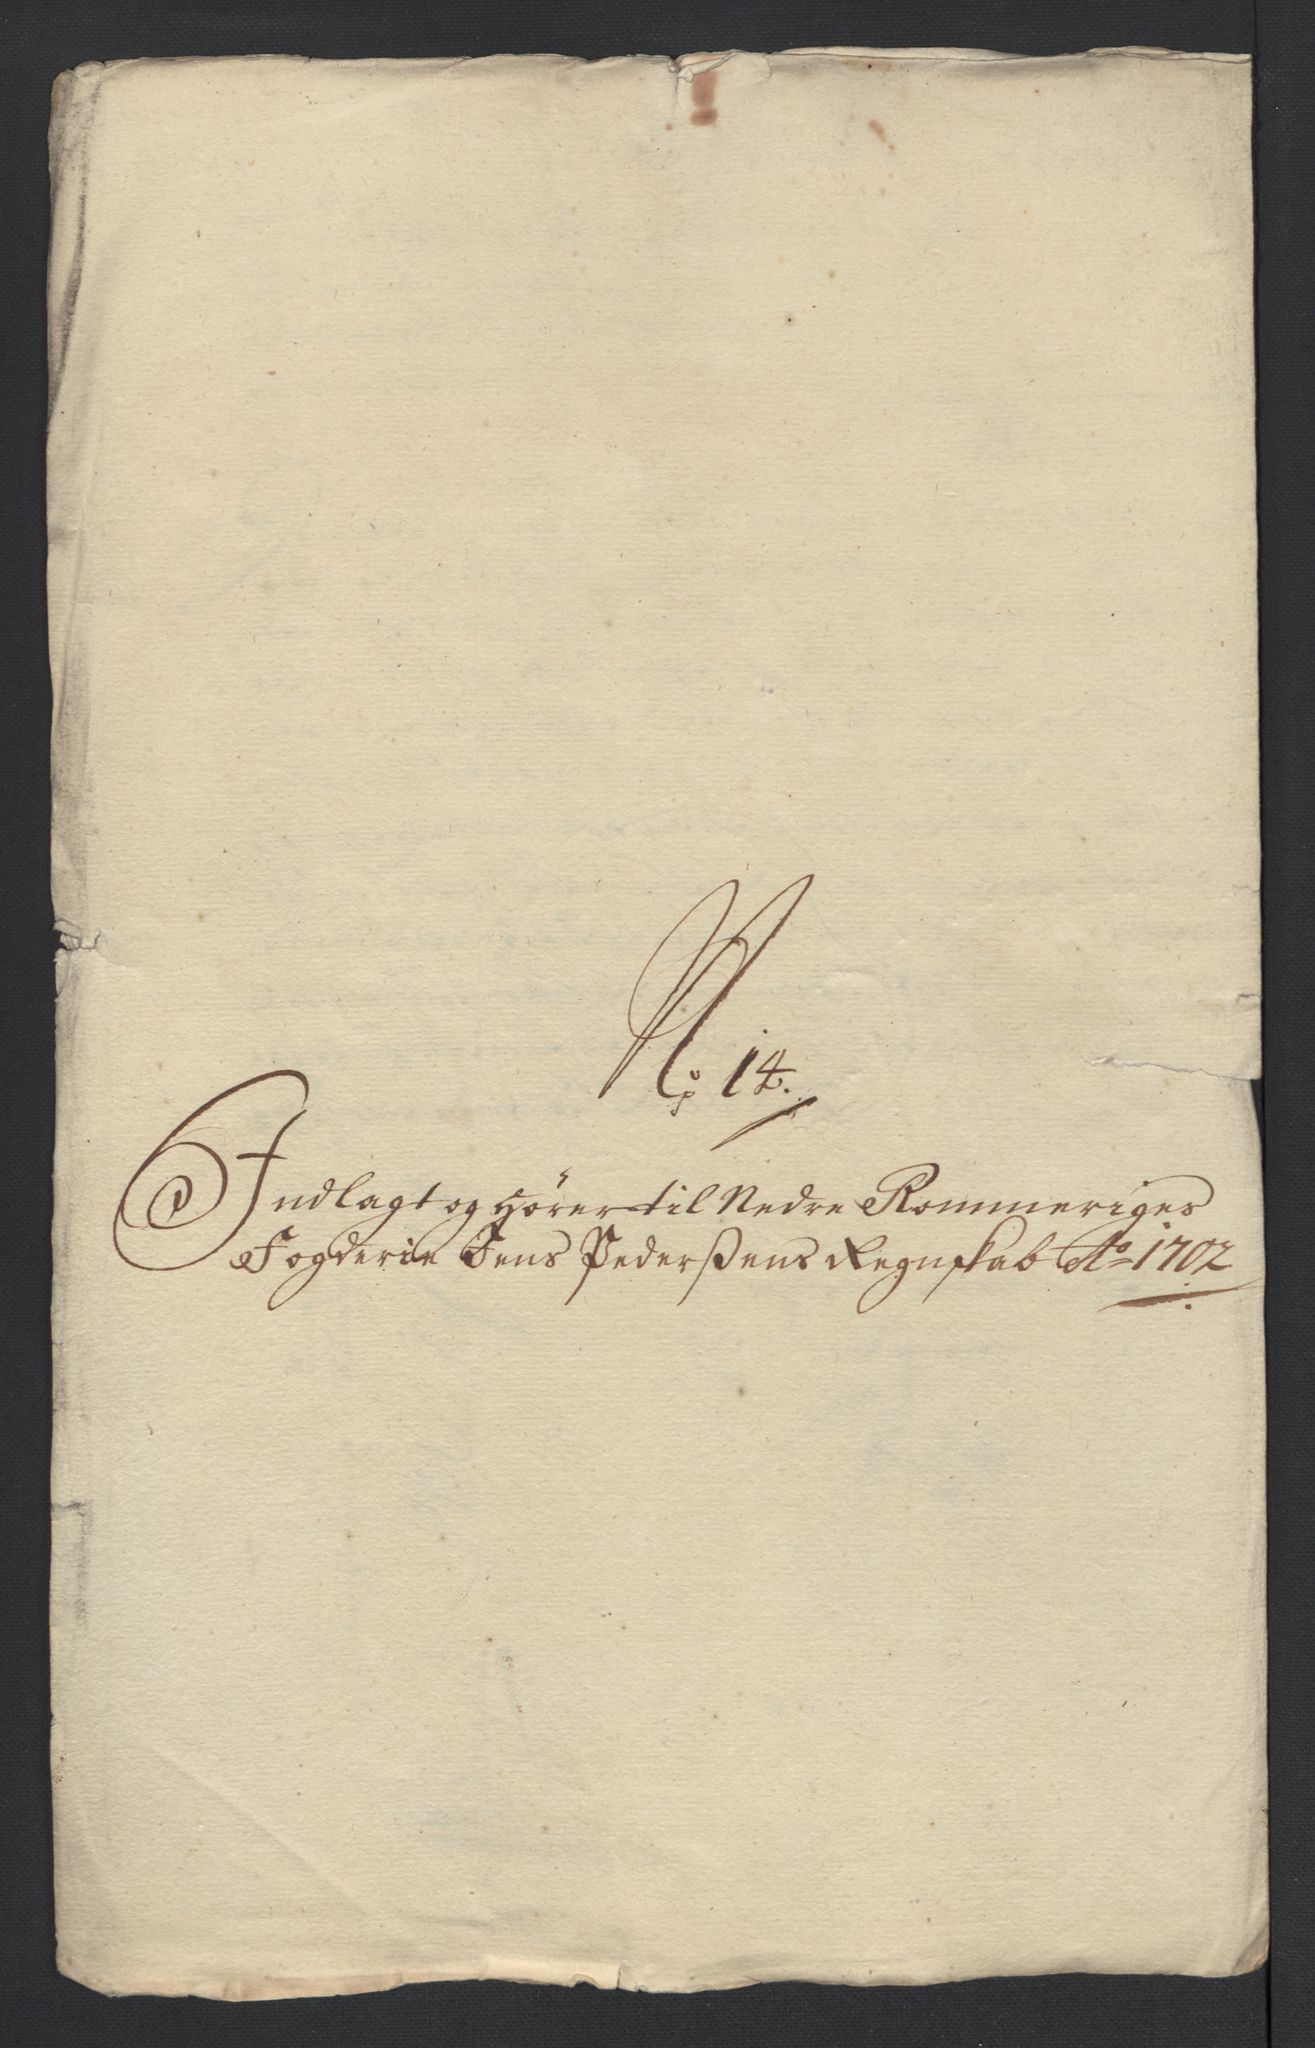 No 14.
Indlagt og hörer til Nedre Rommeriges
Fogderie Jens Pederßens Regnskab Ao 1702